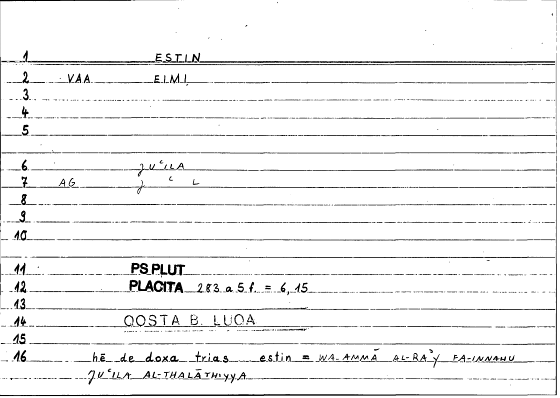 1 ESTIN
2 VAA EIMI
3
4
5
6 JUʿILA
7 AG J ʿ L
8
9
10
11 PS.PLUT
12 PLACITA 283 a 5.f. = 6,15
13
14 QOSTA B. LUQA
15
16 hē de doxa trias estin = WA-AMMĀ AL-RAʾY FA-INNAHU
JUʿILA AL-THALĀTHIYYA